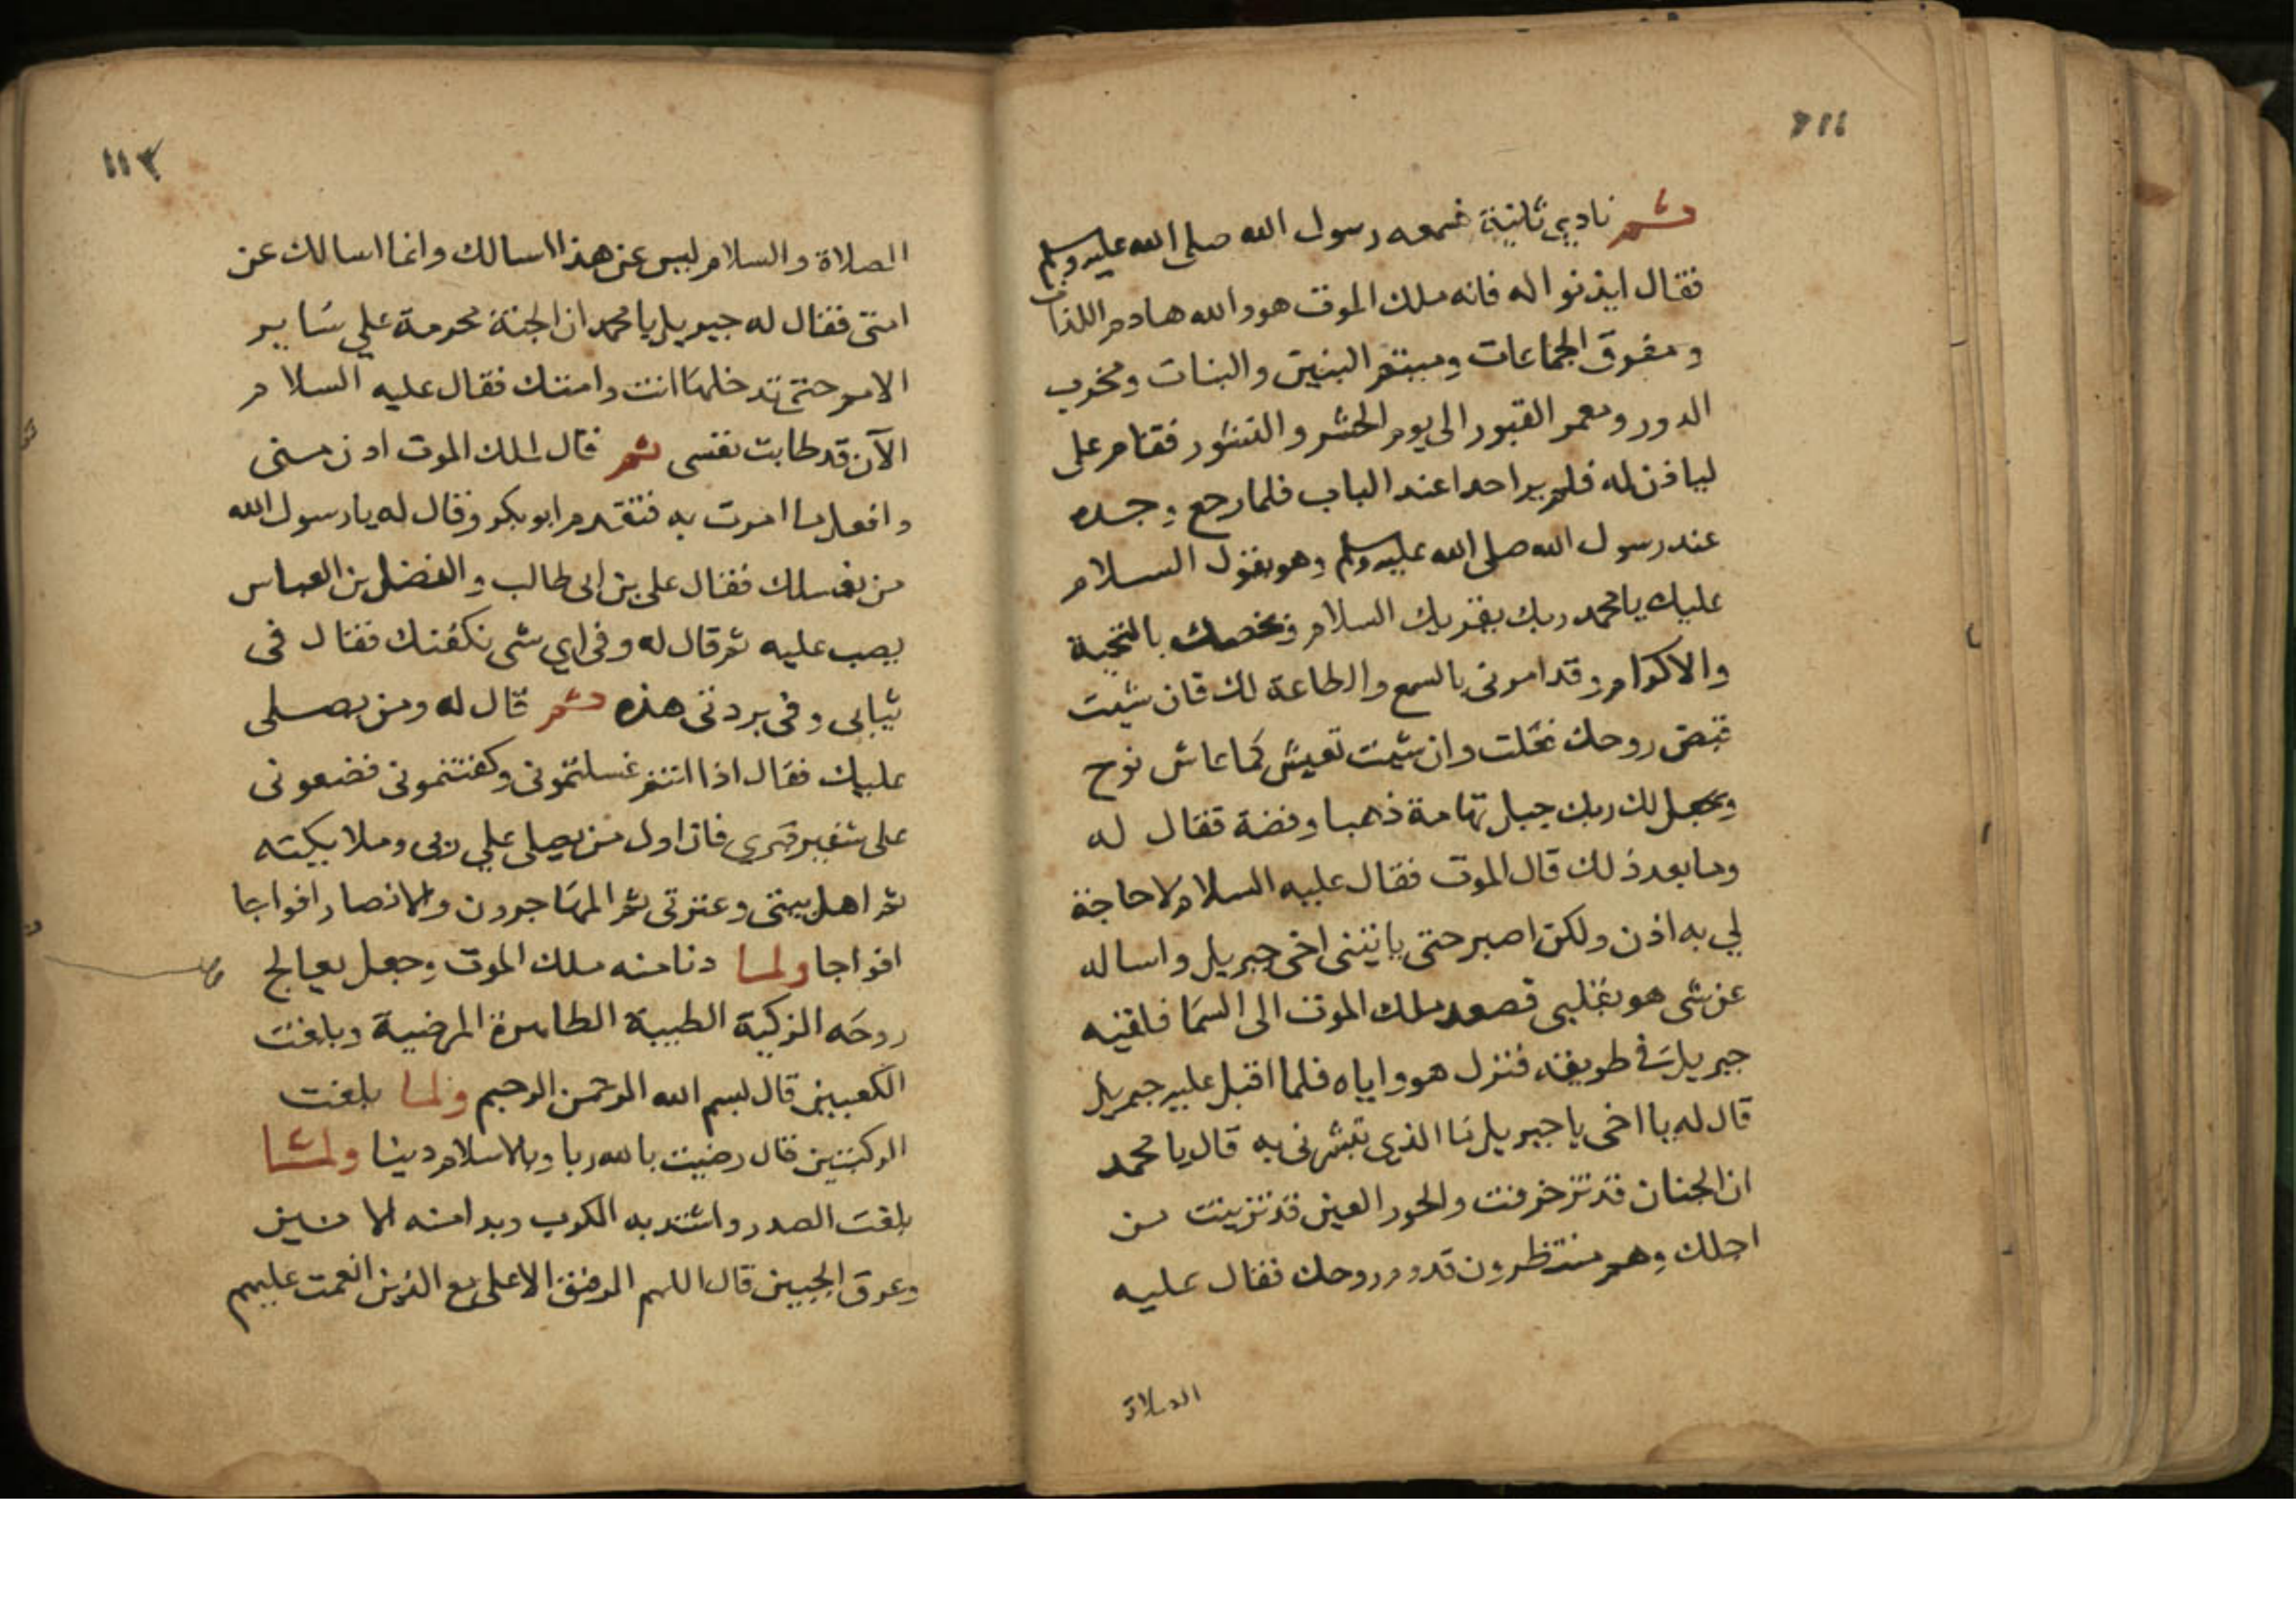 ١١٢
ثم نادي ثانية فسمعه رسول الله صلى الله عليه وسلم
فقال ايذنوا له فانه ملك الموت هو والله هادم اللذات
ومفرق الجماعات وميتم البنين والبنات ومخرب
الدور ومعمر القبور الى يوم الحشر والنشور فقام على
لياذن له فلم ير احدا عند الباب فلما رجع وجده
عند رسول الله صلى الله عليه وسلم وهو يقول السلام
عليك يا محمد ربك يقريك السلام ويخصك بالتحية
والاكرام وقد امرنى بالسمع والطاعة لك فان شيت
قبض روحك فعلت وان شيت تعيش كما عاش نوح
ويجعل لك ربك جبل تهامة ذهبا وفضة فقال له
وما بعد ذلك قال الموت فقال عليه السلام لا حاجة
لي به اذن ولكن اصبر حتى ياتينى اخى جبريل واساله
عن شى هو بقلبى فصعد ملك الموت الى السما فلقيه
جبريل في طريقه فنزل هو واياه فلما اقبل عليه جبريل
قال له يا اخى يا جبريل ما الذي تبشرنى به قال يا محمد
ان الجنان قد تزخرفت والحور العين قد تزينت من
اجلك وهم منتظرون قدوم روحك فقال عليه
الصلاة
١١٣
الصلاة والسلام ليس عن هذا اسالك وانما اسالك عن
امتى فقال له جبريل يا محمد ان الجنة محرمة علي ساير
الامم حتى تدخلها انت وامتك فقال عليه السلام
الآن قد طابت نفسى ثم قال لملك الموت ادن منى
وافعل ما امرت به فتقدم ابو بكر وقال له يا رسول الله
من يغسلك فقال على بن ابى طالب والفضل بن العباس
يصب عليه ثم قال له وفى اي شى نكفنك فقال فى
ثيابى وفى بردتى هذه ثم قال له ومن يصلى
عليك فقال اذا انتم غسلتمونى وكفنتمونى فضعونى
على شفير قبري فان اول من يصلى علي ربى وملايكته
ثم اهل بيتى وعترتى ثم المهاجرون والانصار افواجا
افواجا ولما دنا منه ملك الموت وجعل يعالج
روحه الزكية الطيبة الطاهرة المرضية وبلغت
الكعبين قال بسم الله الرحمن الرحيم ولما بلغت
الركبتين قال رضيت بالله ربا وبالاسلام دينا ولما
بلغت الصدر واشتد به الكرب وبدا منه الانين
وعرق الجبين قال اللهم الرفيق الاعلى مع الذين انعمت عليهم